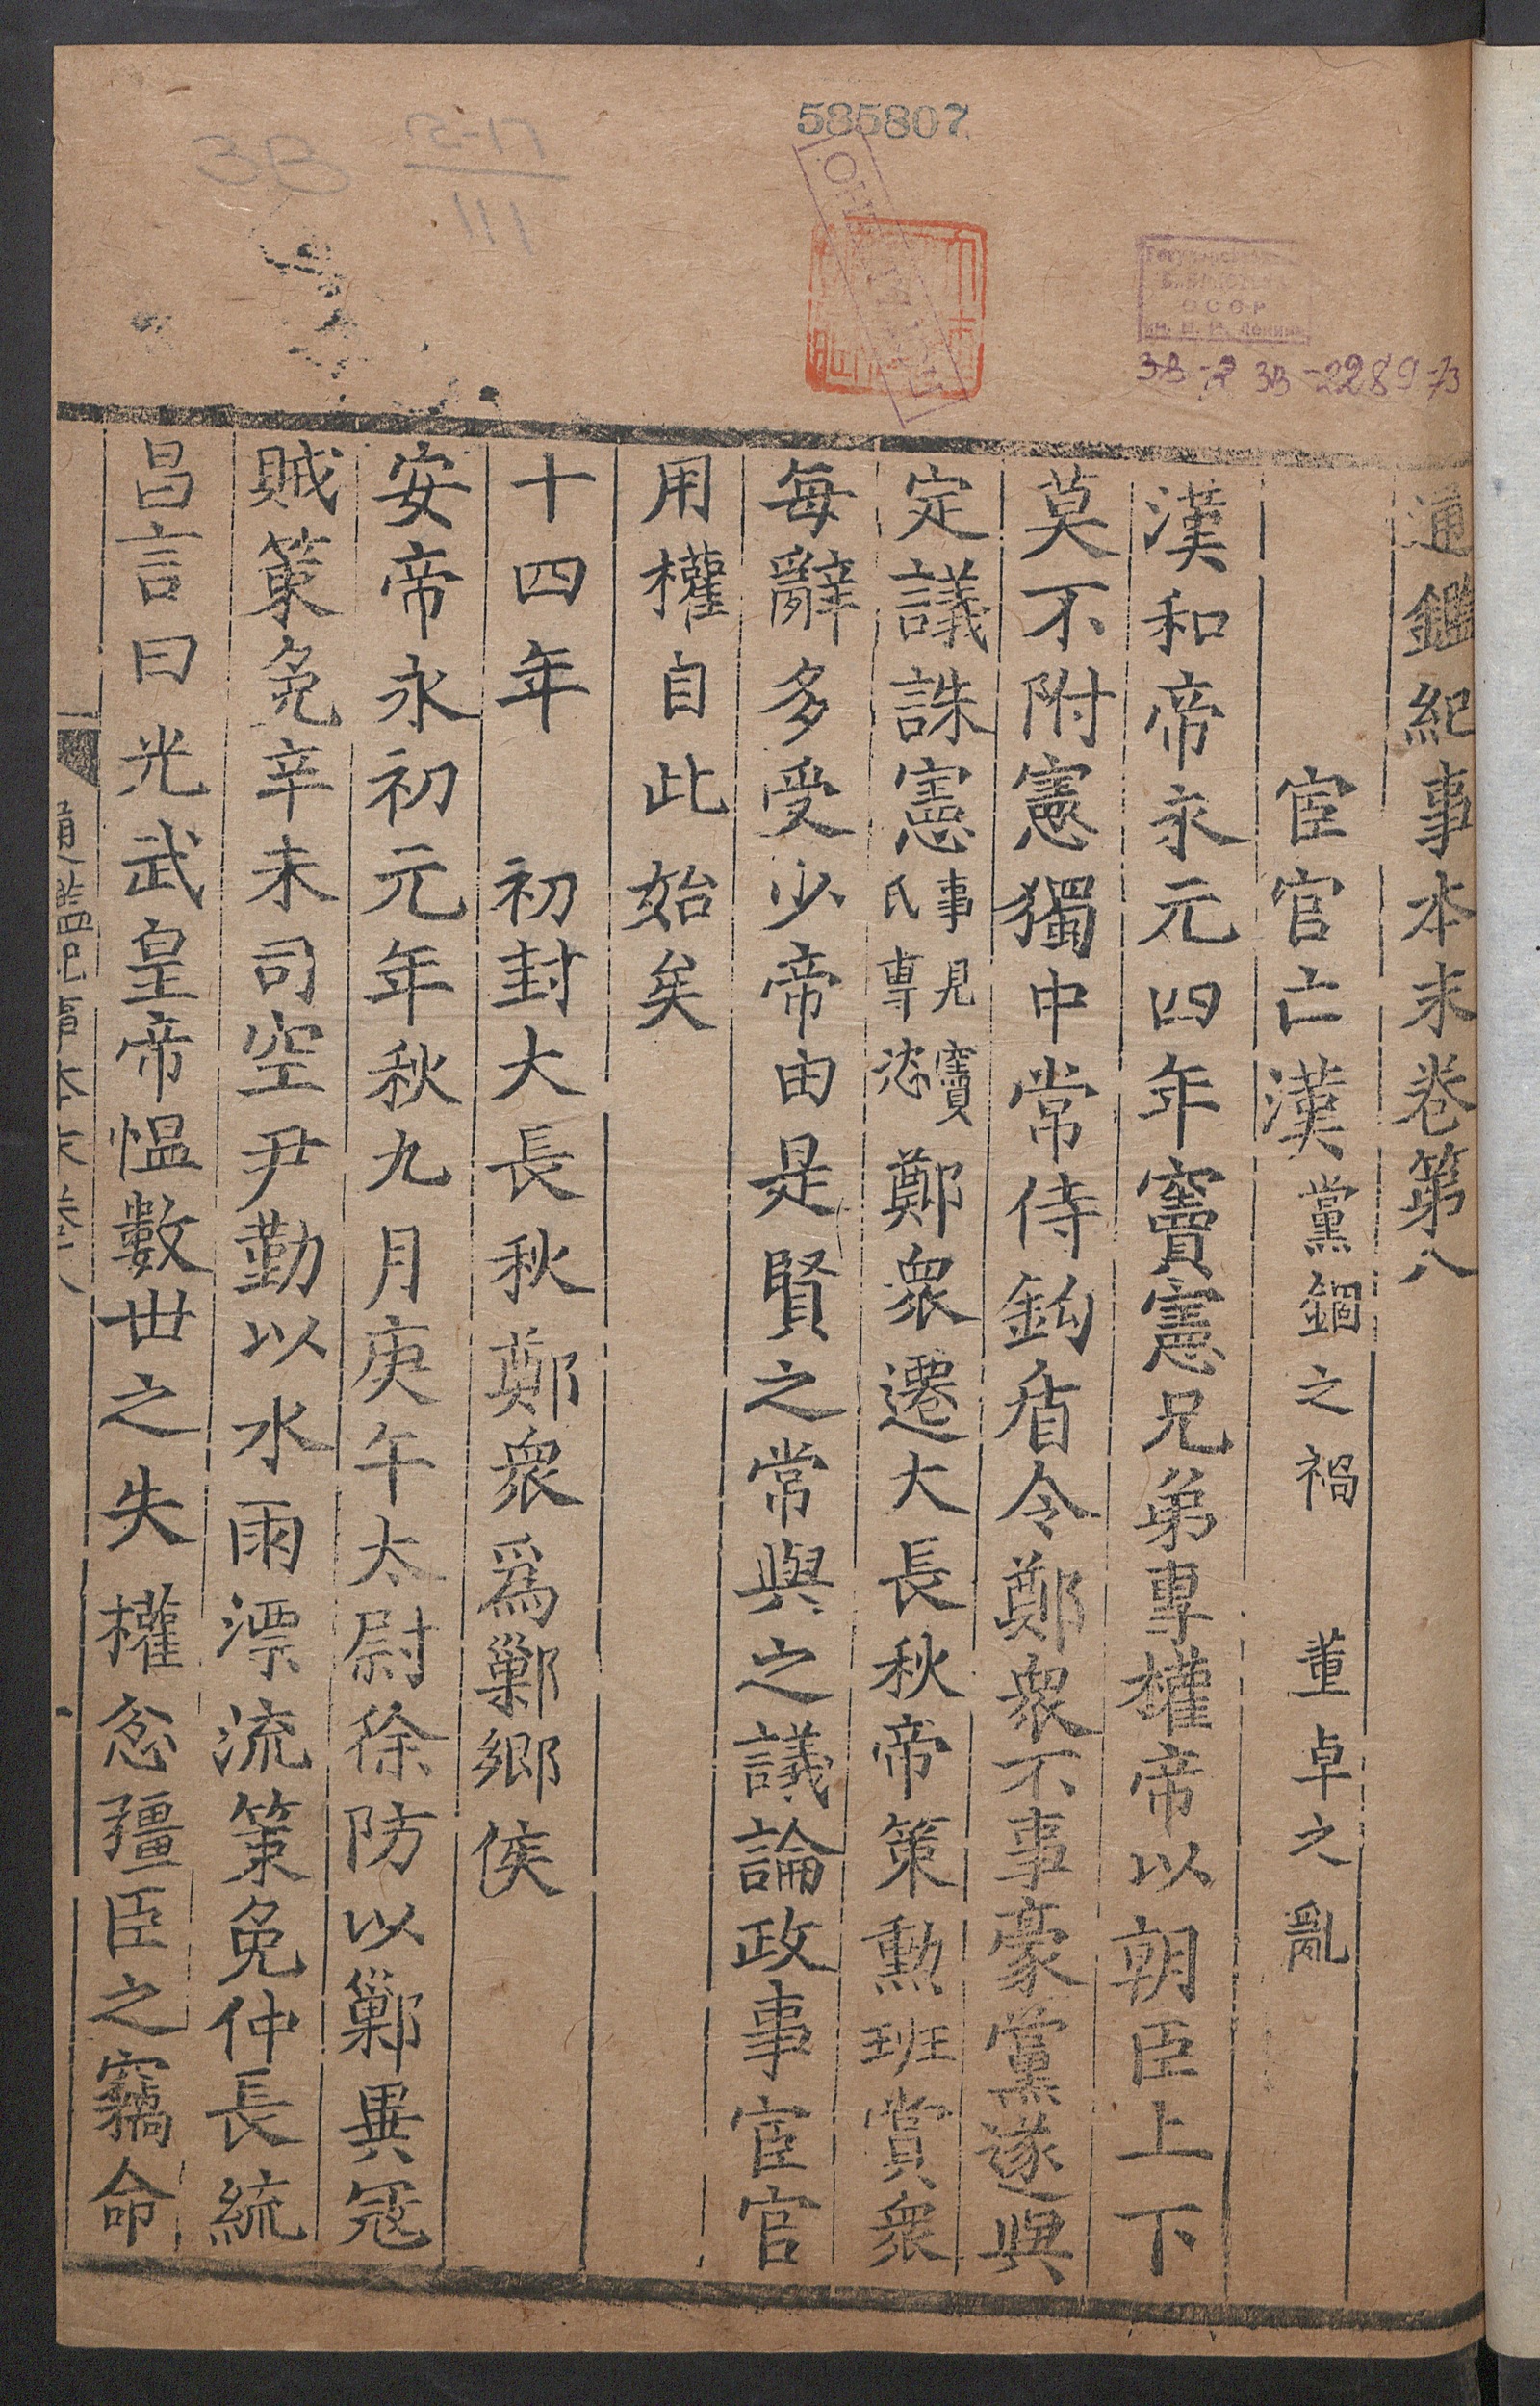 585807
3B
111
3B-2 3B-2289-73
通鑑紀事本末卷第八
宦官亡漢 黨錮之禍 董卓之亂
漢和帝永元四年竇憲兄弟專權帝以朝臣上下
莫不附憲獨中常侍鈎盾令鄭衆不事豪黨遂與
定議誅憲 事見竇氏專恣 鄭衆遷大長秋帝策勲班賞衆
每辭多受少帝由是賢之常與之議論政事宦官
用權自此始矣
十四年 初封大長秋鄭衆爲鄛鄉侯
安帝永初元年秋九月庚午太尉徐防以鄛異寇
賊策免辛未司空尹勤以水雨漂流策免仲長統
昌言曰光武皇帝愠數世之失權忿彊臣之竊命
通鑑紀事本末卷八